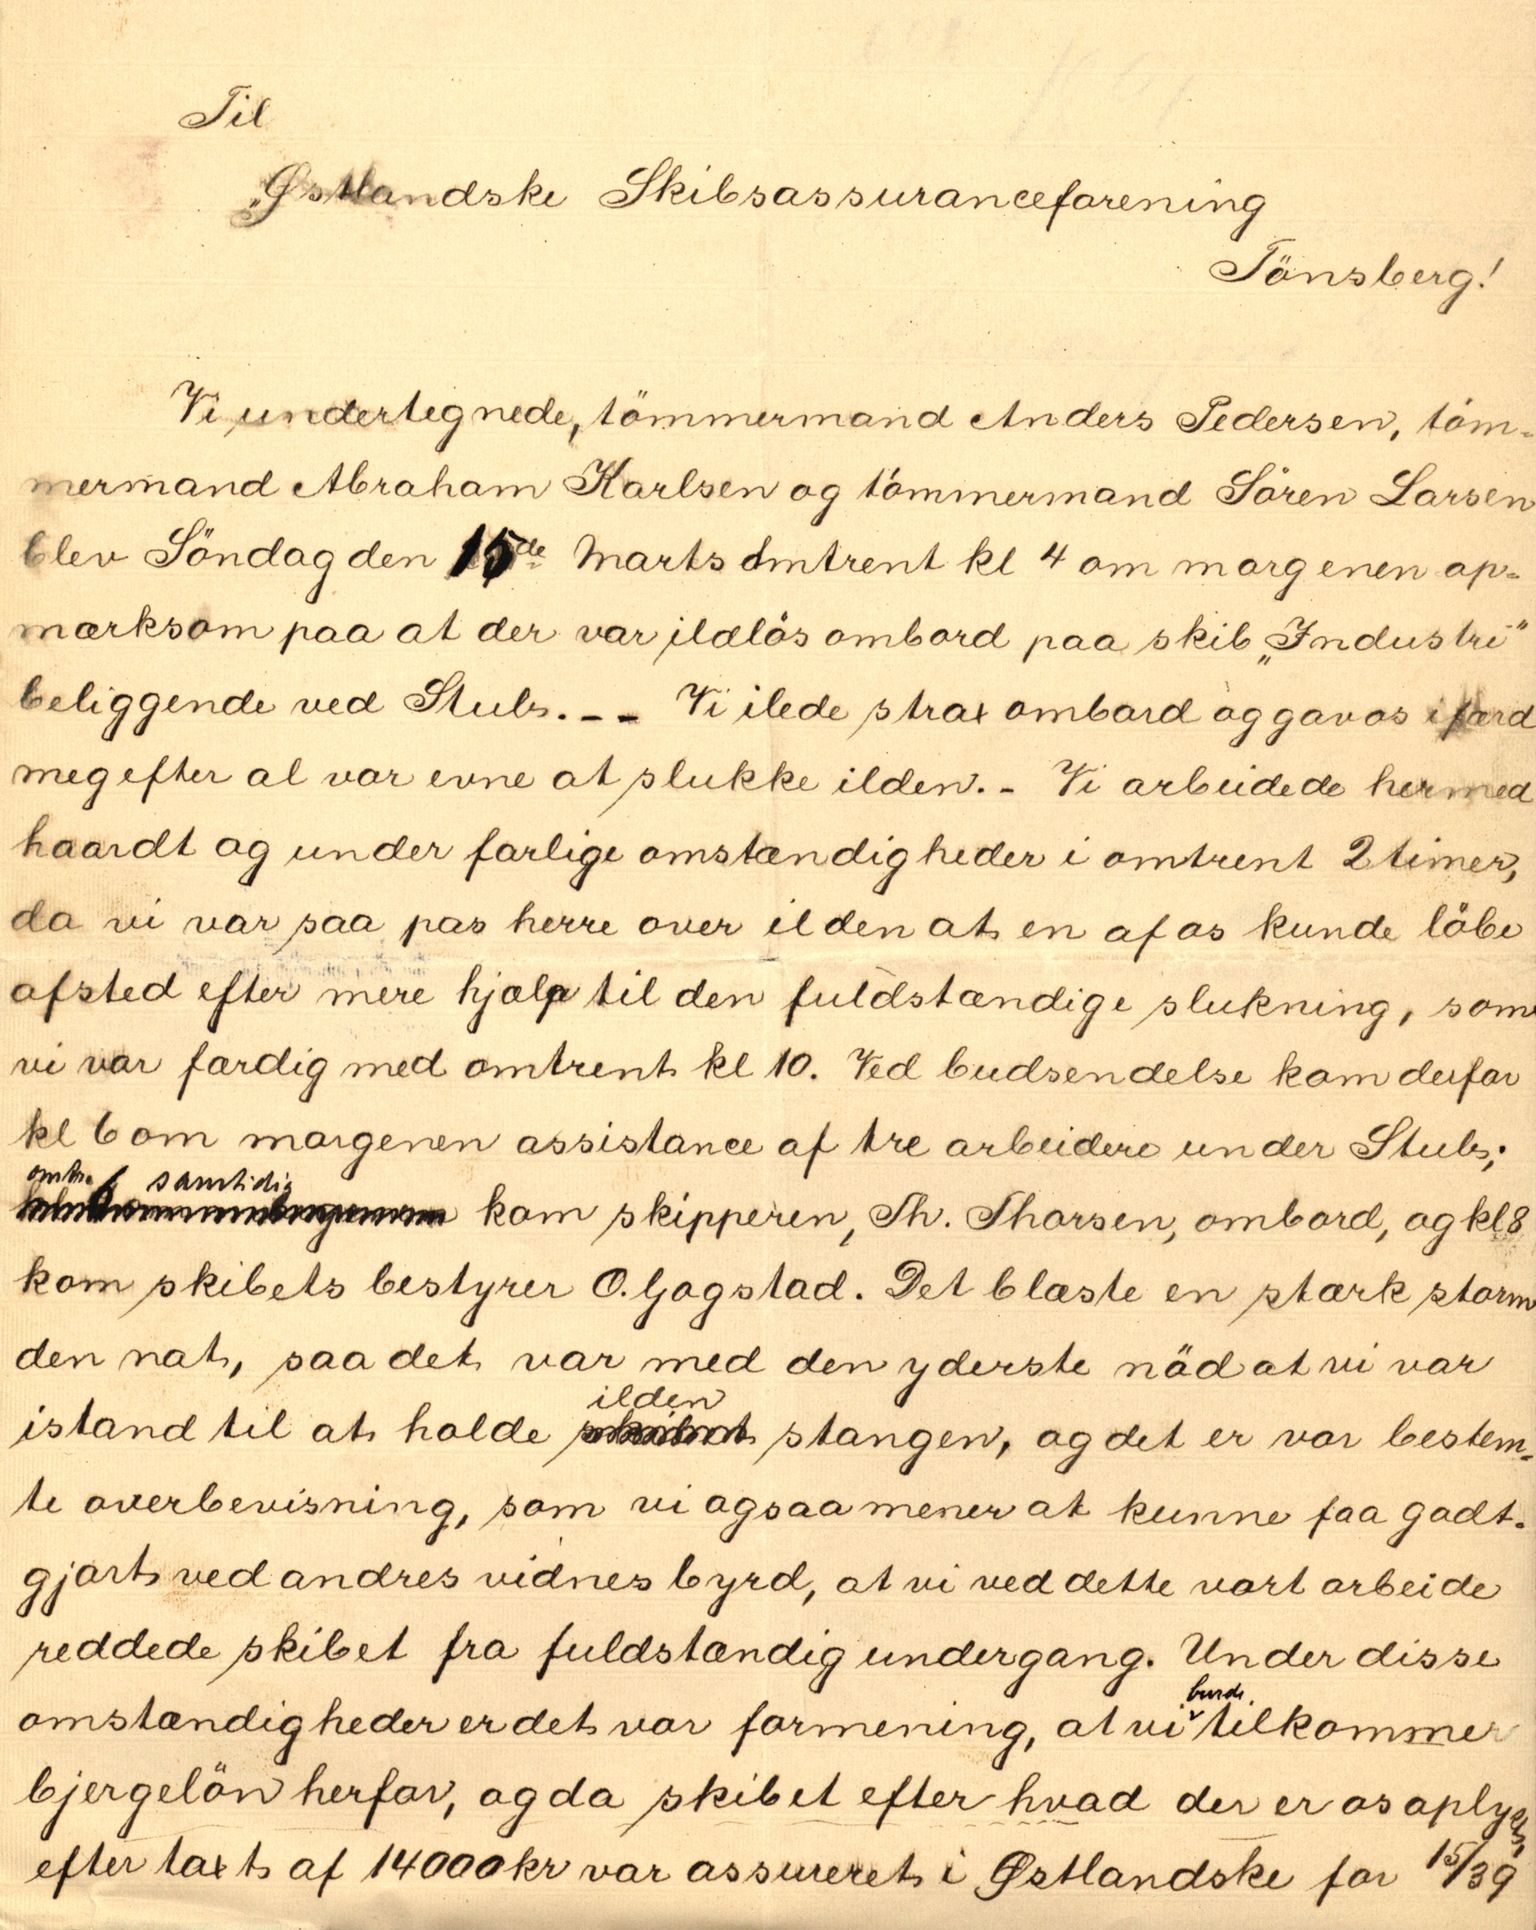 Til
„Østlandske Skibsassuranceforening
Tönsberg!
Vi undertegnede, tömmermand Anders Pedersen, töm-
mermand Abraham Karlsen og tömmermand Sören Larsen
blev Söndag den 15de Marts omtrent kl 4 om morgenen op-
mærksom paa at der var ildlös ombord paa skib „Industri"
beliggende ved Stubs. - - Vi ilede strax ombord og gav os i færd
meg efter al vor evne at slukke ilden. - Vi arbeidede hermed
haardt og under farlige omstændigheder i omtrent 2 timer,
da vi var saa pas herre over ilden at en af os kunde löbe
afsted efter mere hjælp til den fuldstændige slukning, som
vi var færdig med omtrent kl 10. Ved budsendelse kom derfor
kl 6 om morgenen assistance af tre arbeidere under Stubs;
omtr. samtidig
kom skipperen, Th. Thorsen, ombord, og kl 8
kom skibets bestyrer O. Gogstad. Det blæste en stærk storm
den nat, saa det var med den yderste nöd at vi var
istand til at holde ilden stangen, og det er vor bestem-
te overbevisning, som vi ogsaa mener at kunne faa godt-
gjort ved andres vidnesbyrd, at vi ved dette vort arbeide
reddede skibet fra fuldstændig undergang. Under disse
omstændigheder er det vor formening, at vi burde tilkommer
bjergelön herfor, og da skibet efter hvad der er os oplyst
efter taxt af 14000 kr var assureret i Østlandske for 15/39